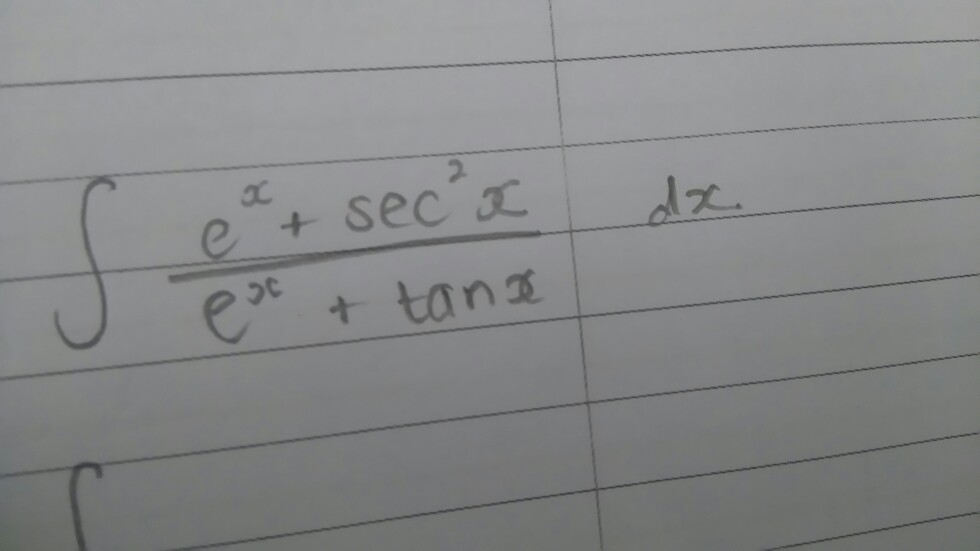 ∫ (e^x + sec^2 x)/(e^x + tan x) dx
∫